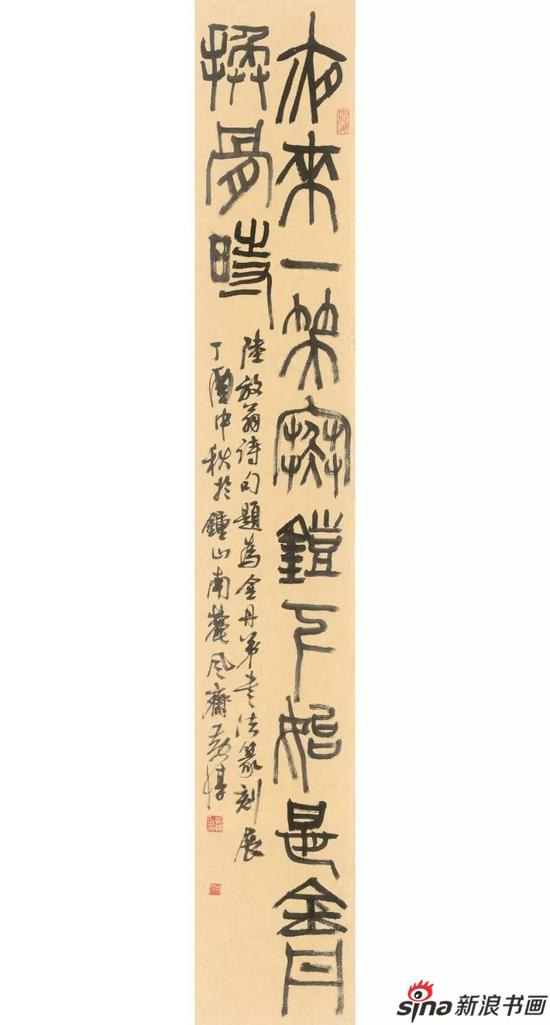 夜來一笑寒鐙下始是金丹
換骨時
陸放翁詩句題為金丹弟書法篆刻展
丁酉中秋於鍾山南麓風齋黃惇
sina新浪书画